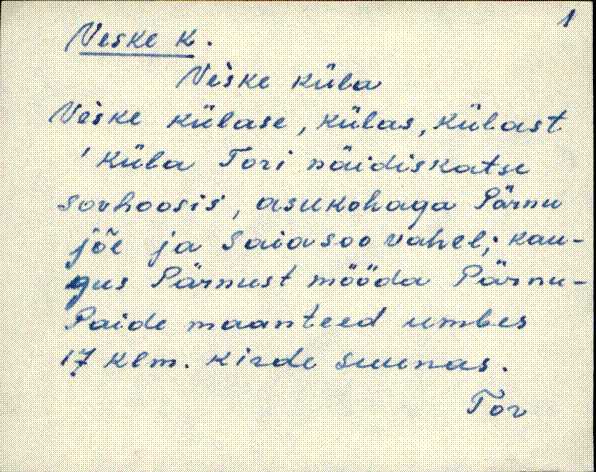 1
Veske k.
Veske küla
Veske külase, külas, külast
' küla Tori näidiskatse
sovhoosis, asukohaga Pärnu
jõe ja Saiasoo vahel; kau-
gus Pärnust mööda Pärnu-
Paide maanteed umbes
17 klm. kirde suunas.
Tor